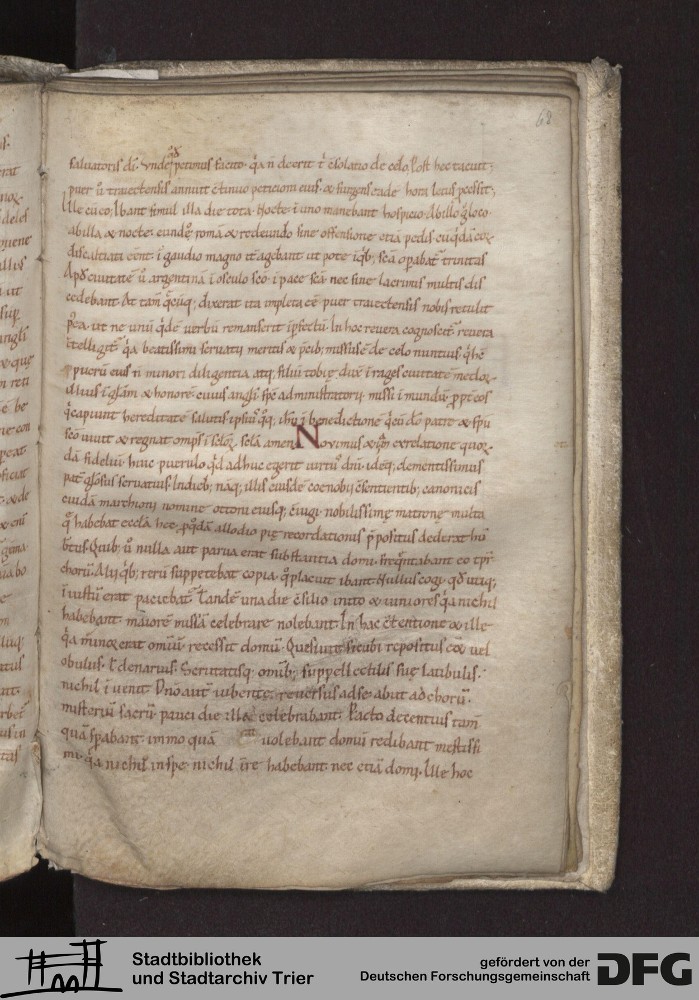 68
saluatoris dī. Vnde petimus facito. q̄a n̄ deerit t̄ c̄solatio de celo. Post hec tacuit.
puer ū traiectensis annuit c̄tinuo peticioni eius. & surgens eade hora letus p̄cessit.
Ille cū eo. Ibant simul illa die tota. Nocte. ī uno manebant hospicio. Ab illo q̄ loco
ab illa & nocte. eundē romā & redeundo sine offensione etiā pedis
discaltiati eēnt. ī gaudio magno itē agebant. ut pote īq̄b; scā opabat trinitas
Ap̄d ciuitatē ū argentinā ī osculo sco. ī pace scā nec sine lacrimis multis dis
cedebant. At tam dixerat ita impleta eē puer traiectensis nobis retulit
ut ne unū q̄dē uerbū remanserit īpfectū. In hoc reuera cognoscit reuera
ītelligit q̄a beatissimi seruatii meritis & p̄cib; missus ē de celo nuntius
puerū eius n̄ minori diligentia atq; filiū tobię. duxit ī rages ciuitatē medoꝝ.
illius ī glām & honorē cuius angli spē administratorii. missi ī mundū. ppt eos
q̄ capiunt hereditatē salutis ihm ī benedictione patre & spū
sco uiuit & regnat omps ī scloꝝ. scla amen. Nouimus ex relatione quoꝛ
dā fidelium huic puerulo q̄d adhuc egerit uirtū dnī. clementissimus
pat glosus seruatius. Indieb; nāq; illis eiusdē coenobii c̄sentientib; canonicis
cuidā marchioni nomine ottoni eiusq; c̄iugi nobilissimę matronę multa
habebat ecclā hec. allodio pię recordationis p̄positus dederat
Quib; ū nulla aut parua erat substantia domi. freq̄ntabant eo tpr
chorū. Aliis q̄b; rerū suppetebat copia. q̄ placuit ibant. Nullus cogi
ī iustū erat paciebat. Tandē una die c̄silio inito & iuniores q̄a nichil
habebant. maiorē missā celebrare nolebant. In hac c̄tentione & ille
q̄a minoꝛ erat omiū. recessit domū. Quesiuit sicubi repositus uel
obulus. t̄ denarius. Scrutatisq; omīb; suppellectilis suę latibulis.
nichil ī uenit. Dnō aut̄ iubente reuersus ad se. abiit ad chorū.
misteriū sacrū pauci die illa celebrabant. Facto decentius tam̄
quā sperabant. immo quā uolebant domū redibant mestissi
mi. q̄a nichil in spe. nichil ī re habebant. nec etiā domi. Ille hoc
Stadtbibliothek
und Stadtarchiv Trier
gefördert von der
Deutschen Forschungsgemeinschaft
DFG